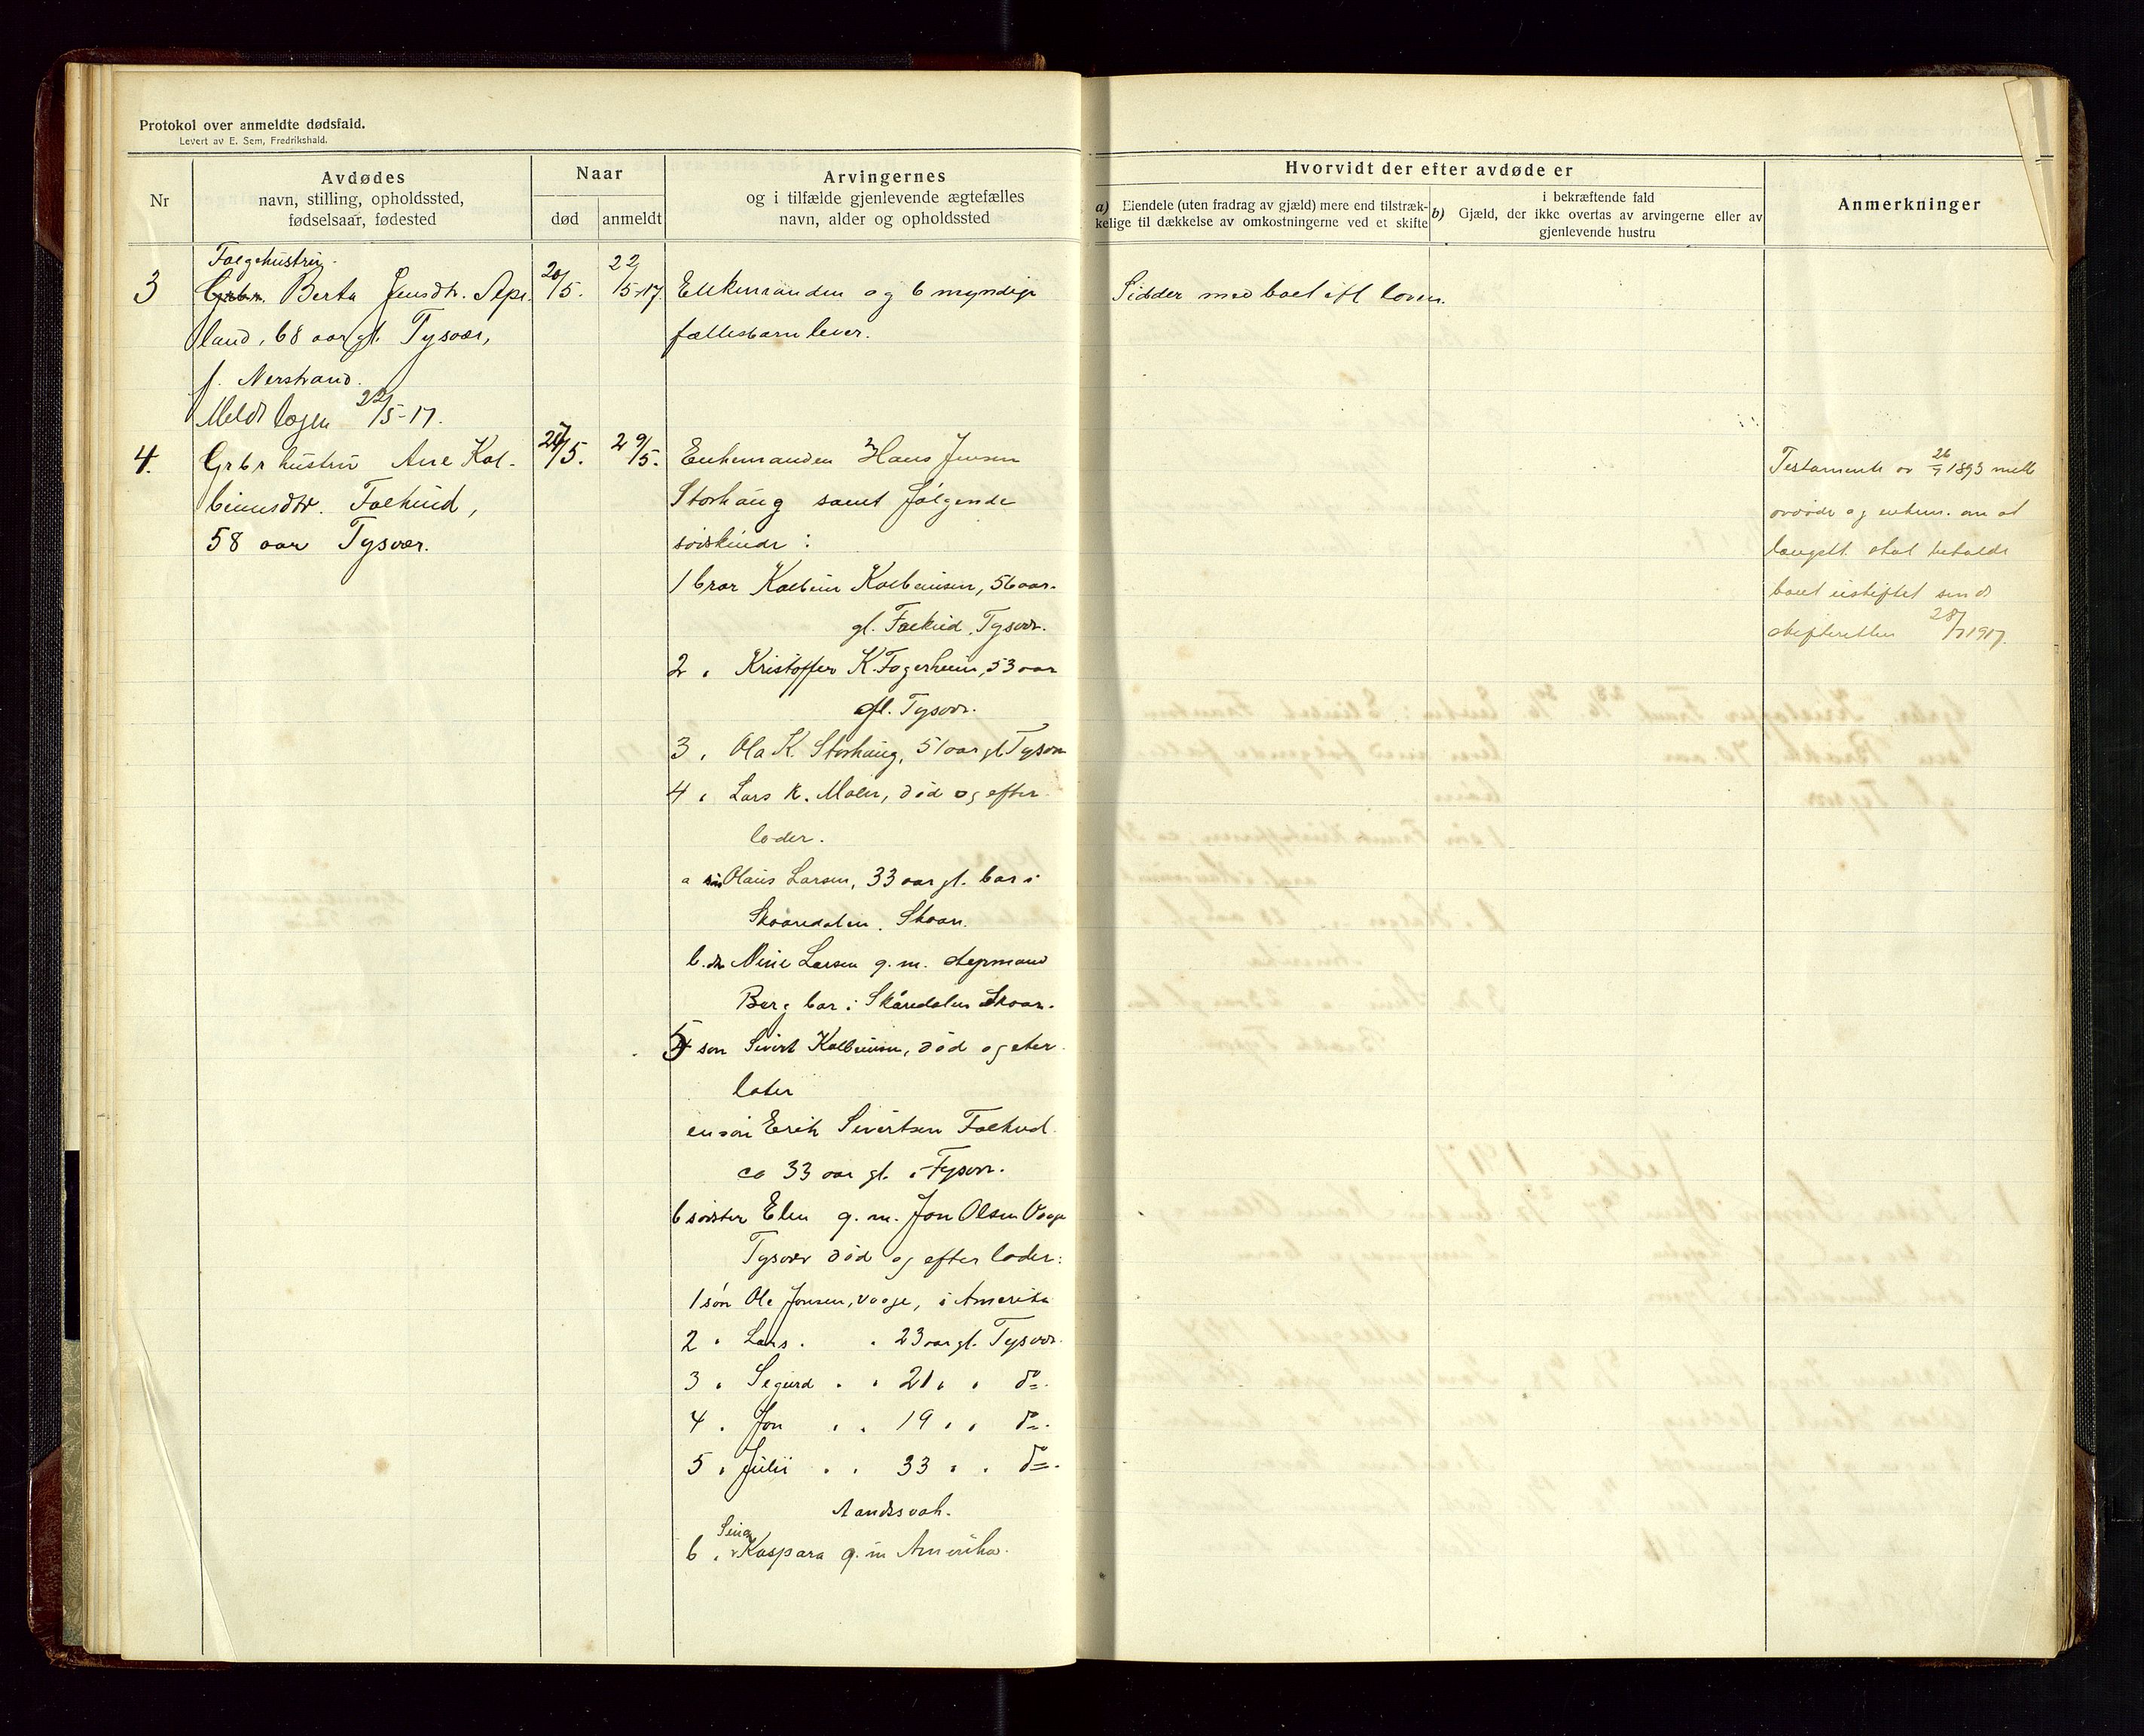 Protokol over anmeldte dødsfald.
Levert av E. Sem, Fredrikshald.
Nr
Avdødes
navn, stilling, opholdssted,
fødselsaar, fødested
Naar
død
anmeldt
Arvingernes
og i tilfælde gjenlevende ægtefælles
navn, alder og opholdssted
Hvorvidt der efter avdøde er
a) Eiendele (uten fradrag av gjæld) mere end tilstræk-
kelige til dækkelse av omkostningerne ved et skifte
i bekræftende fald
b) Gjæld, der ikke overtas av arvingerne eller av
gjenlevende hustru
Anmerkninger
3
Folgehustru
Grbr. Berta Jensdtr. Ape-
land, 68 aar gl. Tysvær,
f. Nerstrand.
Meldt 22/5-17.
20/5.
22/5-17
Enkemanden og 6 myndige
fællesbarn lever.
Sidder med boet eft loven.
4.
Grbr hustru Ane Kol-
beinsdtr. Falkeid,
58 aar Tysvær.
27/5.
29/5.
Enkemanden Hans Jensen
Storhaug samt følgende
søiskende:
1 bror Kolbein Kolbeinsen, 56 aar
gl. Falkeid, Tysvær.
2 " Kristoffer K. Fagerheim, 53 aar
gl. Tysvær.
3 " Ola K. Storhaug, 51 aar gl Tysvær
4 " Lars K. død og efter
lader.
a søn Olaus Larsen, 33 aar gl. bor i
Skaaredalen. Skaare.
b. dtr Larsen g. m.
Berg bor i Skaaredalen Skaare.
5 søn Sivert Kolbeinsen, død og efter
later
en søn Erik Sivertsen Falkeid
ca 33 aar gl. i Tysvær.
6 søster Elen g. m. Jon Olsen Vaage
Tysvær død og efterlader:
1 søn Ole Jonsen, Vaage, i Amerika
2 " Lars " " 23 aar gl. Tysvær.
3 " Sigurd " " 21 " " do.
4 " Jon " " 19 " " do.
5 " Julii " " 33 " " do.
Aandssvak.
6 " Sina Kaspara g. m Amerika.
Testamente av 26/7 1893 mell
avdøde og enkem. om at
længstl. skal beholde
boet uskiftet sendt
skifteretten 28/7 1917.